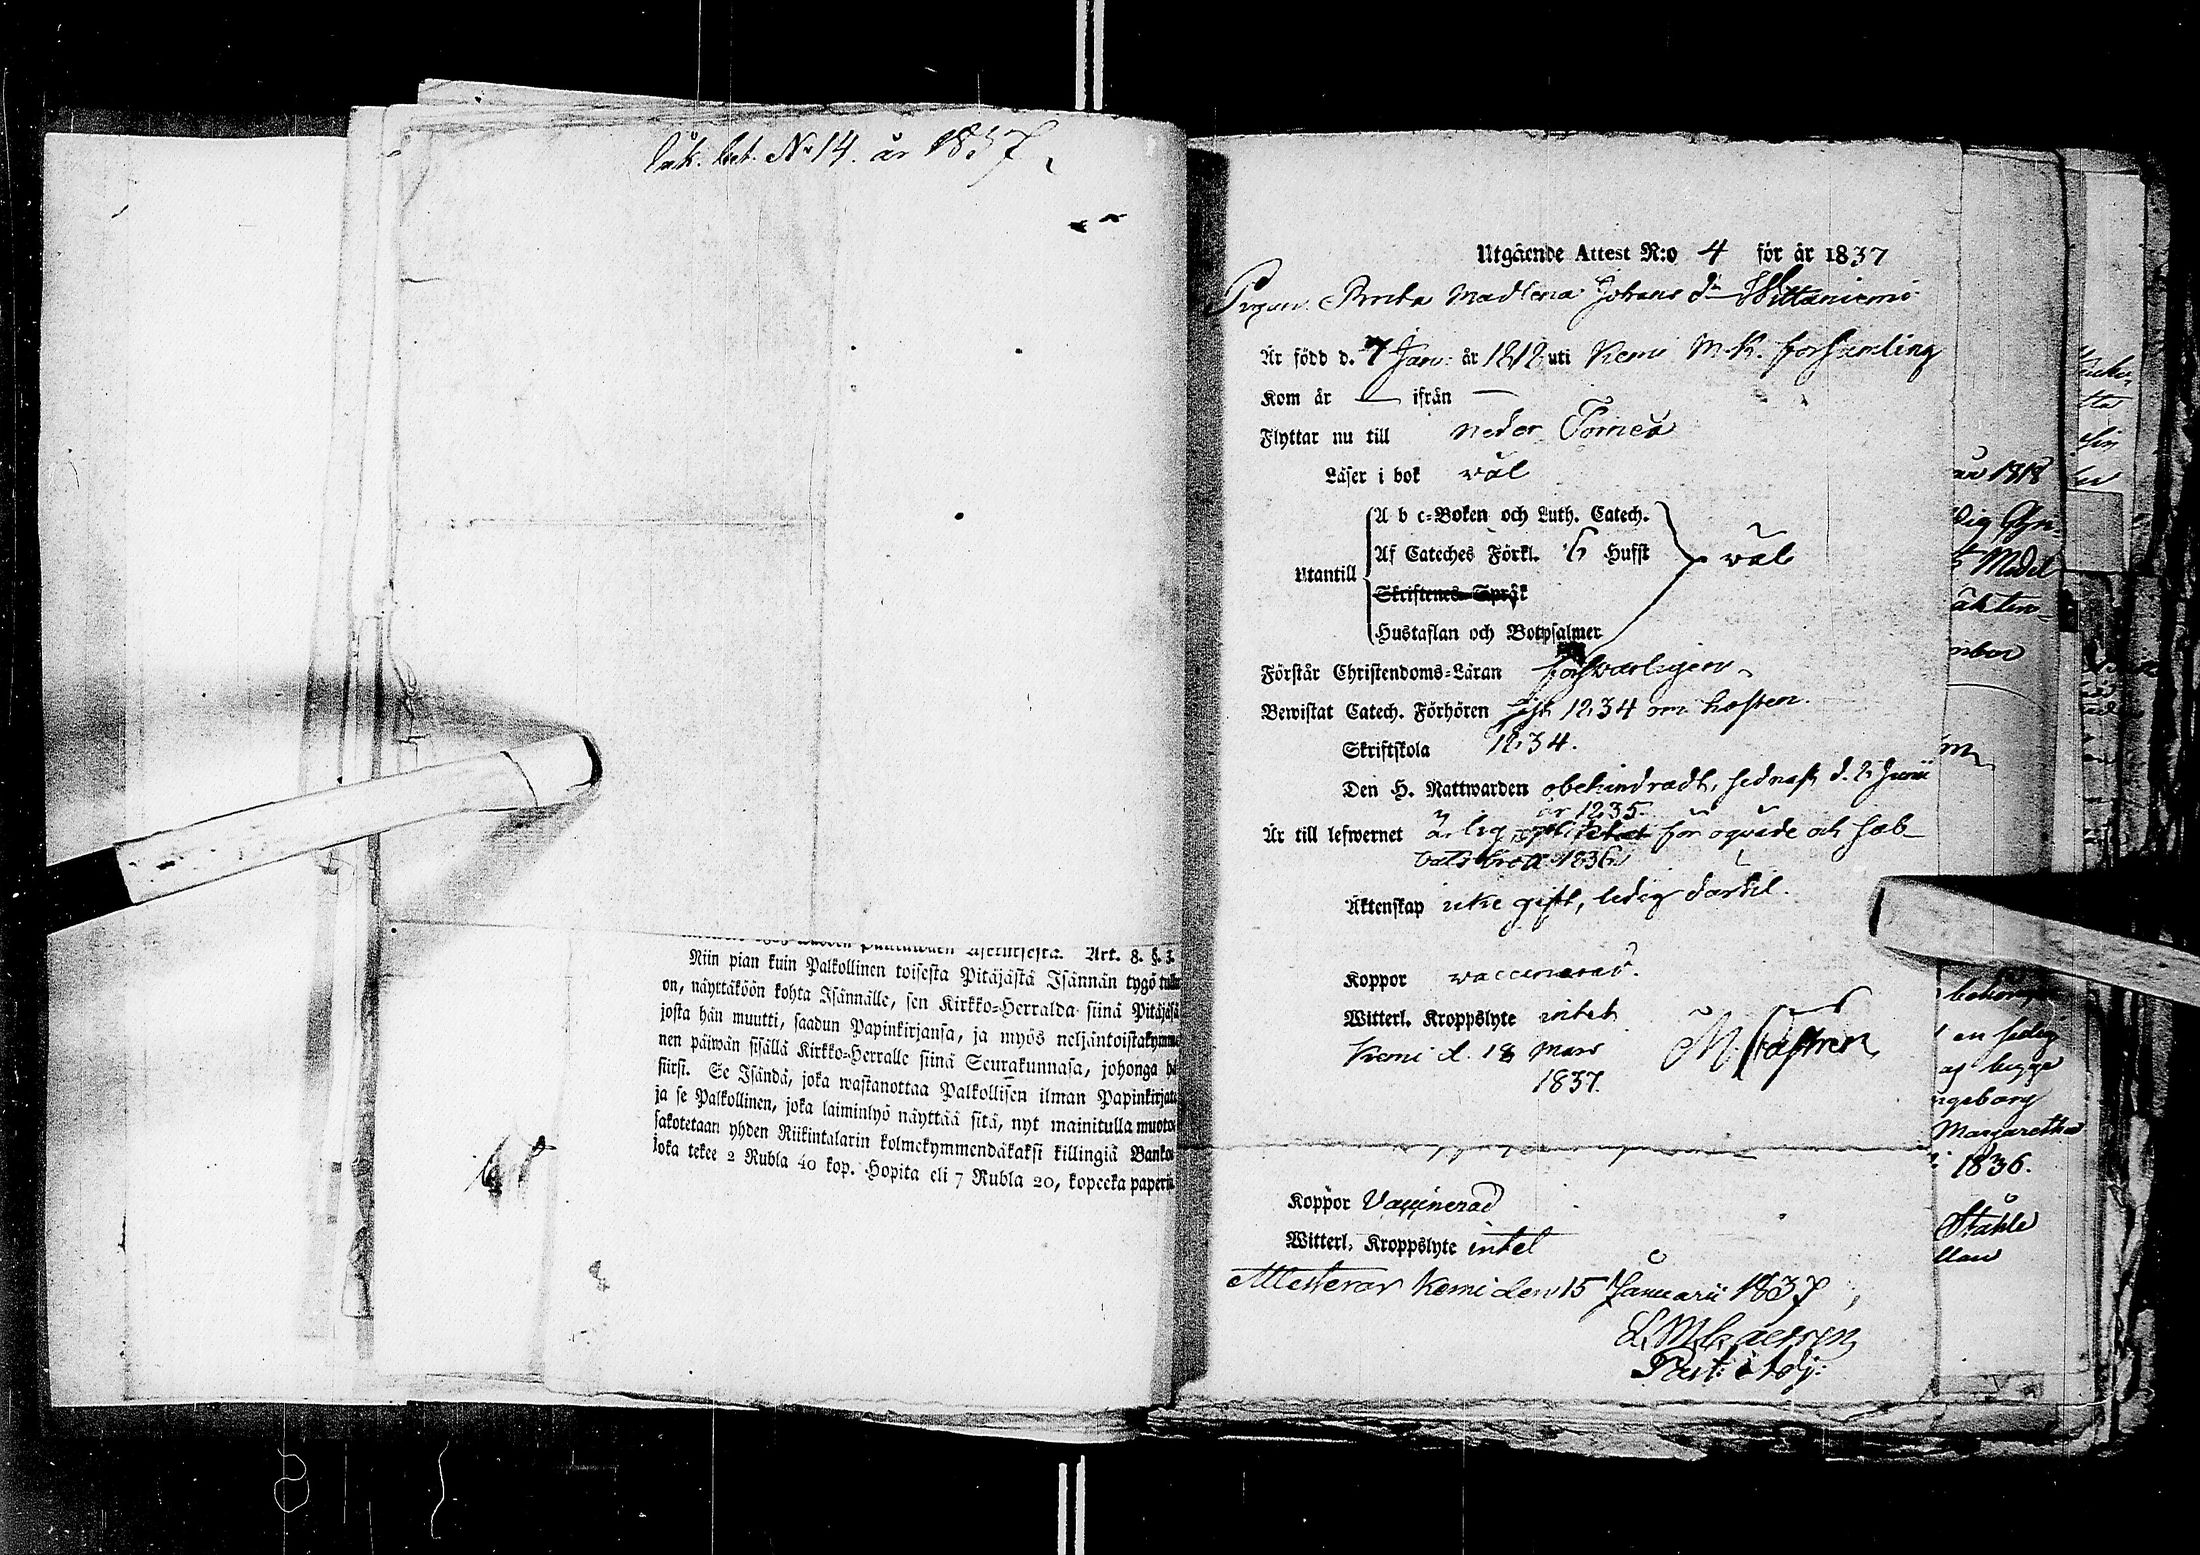 låk. bet. No 14. år 1837.
Art. 8. §. 3.
Niin pian kuin Palkollinen toisesta Pitäjästä Isännän tygö
on, näyttäköön kohta Isännälle, sen Kirkko-Herralda siinä
josta hän muutti, saadun Papinkirjansa, ja myös
nen päiwän sisällä Kirkko-Herralle siinä Seurakunnasa, johonga
siirsi. Se Isändä, joka wastanottaa Palkollisen ilman
ja se Palkollinen, joka laiminlyö näyttää sitä, nyt mainitulla
sakotetaan yhden Riikintalarin kolmekymmendäkaksi killingiä
joka tekee 2 Rubla 40 kop. Hopita eli 7 Rubla 20, kopecka
Utgående Attest N:o 4 för år 1837
Pigan Brita Madlena Johans dr
Är född d. 7 Janu: år 1818 uti Kemi M.K. församling
Kom år — ifrån —
Flyttar nu till neder Torneå
Läser i bok wäl
A b c-Boken och Luth. Catech.
Utantill Af Cateches Förkl. 6 Hufst wäl
Skriftenes Språk
Hustaflan och Botpsalmer
Förstår Christendoms-Läran försvarligen
Bewistat Catech. Förhören sist 1834 om hösten.
Skriftskola 1834.
Den H. Nattwarden obehindradt, sednast d. 8 Junii
år 1835.
Är till lefwernet ärlig för oqväde och sab
batsbrott 1836
Äktenskap icke gift, ledig dartil.
Koppor vaccinerad.
Witterl. Kroppslyte intet
Kemi d. 18 Mars
1837.
M. Castren
Koppor Vaccinerad
Witterl. Kroppslyte intet
Attesterar Kemi den 15 Januarii 1837
Past: adj:
1818
Margaretha
1836.
Ståhle